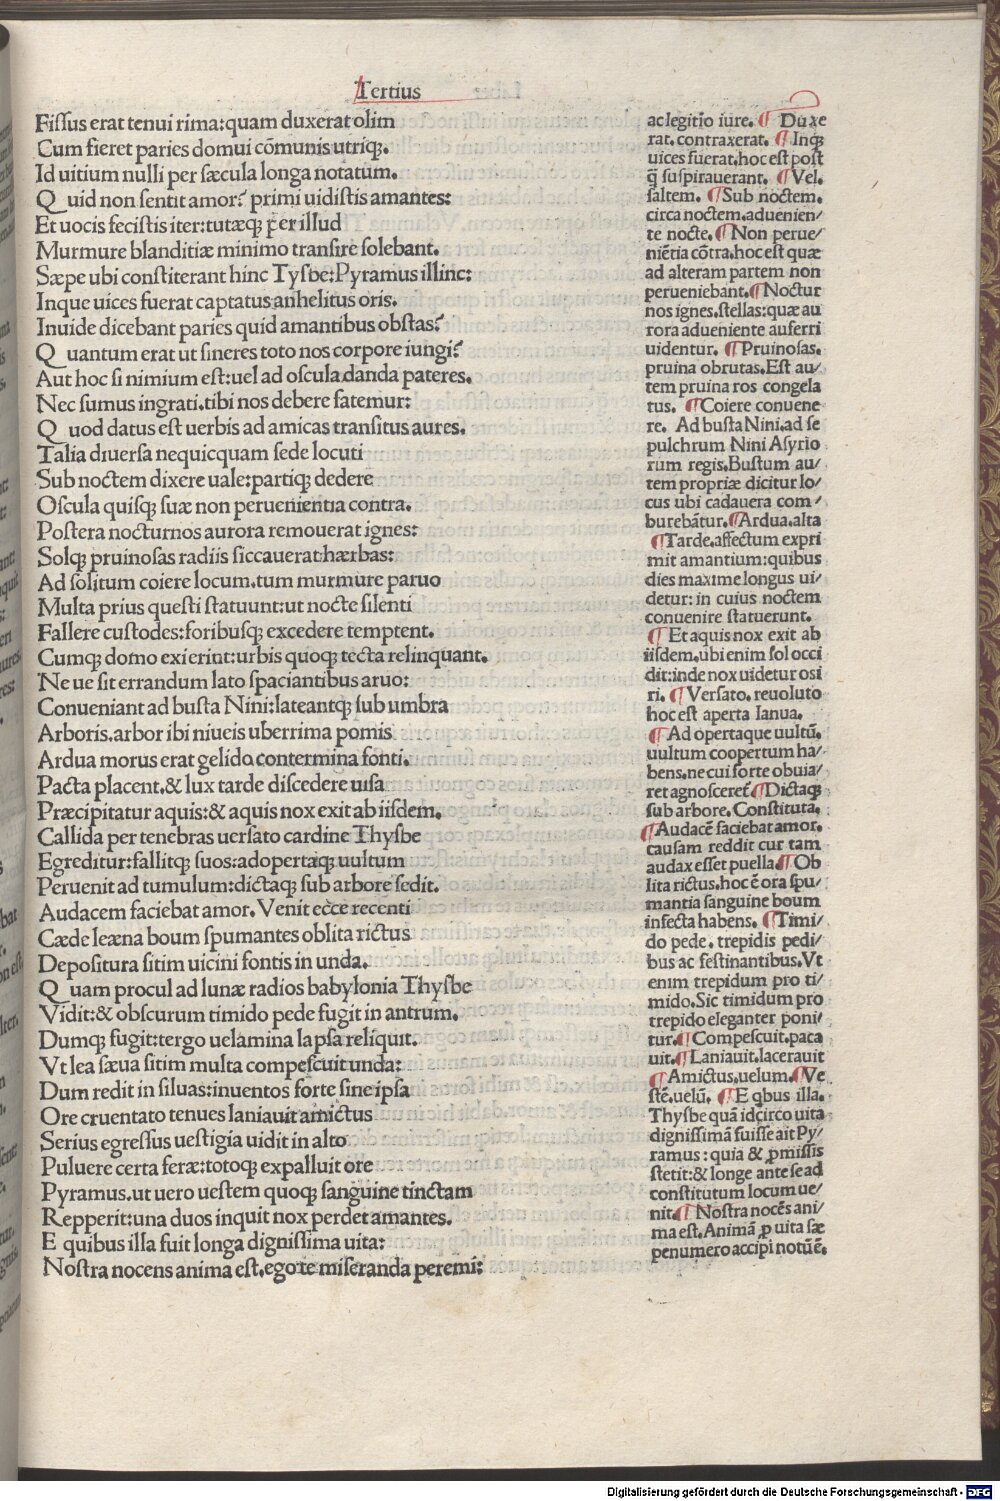 Tertius
Fissus erat tenui rima:quam duxerat olim
Cum fieret paries domui cōmunis utriq;.
Id uitium nulli per sæcula longa notatum.
Q uid non sentit amor? primi uidistis amantes:
Et uocis fecistis iter:tutæq; per illud
Murmure blanditiæ minimo transire solebant.
Sæpe ubi constiterant hinc Tysbe:Pyramus illinc:
Inque uices fuerat captatus anhelitus oris.
Inuide dicebant paries quid amantibus obstas?
Q uantum erat ut sineres toto nos corpore iungi?
Aut hoc si nimium est:uel ad oscula danda pateres.
Nec sumus ingrati.tibi nos debere fatemur:
Q uod datus est uerbis ad amicas transitus aures.
Talia diuersa nequicquam sede locuti
Sub noctem dixere uale:partiq; dedere
Oscula quisq; suæ non peruenientia contra.
Postera nocturnos aurora remouerat ignes:
Solq; pruinosas radiis siccauerat hærbas:
Ad solitum coiere locum.tum murmure paruo
Multa prius questi statuunt:ut nocte silenti
Fallere custodes:foribusq; excedere temptent.
Cumq; domo exierint:urbis quoq; tecta relinquant.
Ne ue sit errandum lato spaciantibus aruo:
Conueniant ad busta Nini:lateantq; sub umbra
Arboris.arbor ibi niueis uberrima pomis
Ardua morus erat gelido contermina fonti.
Pacta placent.& lux tarde discedere uisa
Præcipitatur aquis:& aquis nox exit ab iisdem.
Callida per tenebras uersato cardine Thysbe
Egreditur:fallitq; suos:adopertaq; uultum
Peruenit ad tumulum:dictaq; sub arbore sedit.
Audacem faciebat amor. Venit ecce recenti
Cæde leæna boum spumantes oblita rictus
Depositura sitim uicini fontis in unda.
Q uam procul ad lunæ radios babylonia Thysbe
Vidit:& obscurum timido pede fugit in antrum.
Dumq; fugit:tergo uelamina lapsa reliquit.
Vt lea sæua sitim multa compescuit unda:
Dum redit in siluas:inuentos forte sine ipsa
Ore cruentato tenues laniauit amictus
Serius egressus uestigia uidit in alto
Puluere certa feræ:totoq; expalluit ore
Pyramus.ut uero uestem quoq; sanguine tinctam
Repperit:una duos inquit nox perdet amantes.
E quibus illa fuit longa dignissima uita:
Nostra nocens anima est.ego te miseranda peremi:
ac legitio iure. ¶ Duxe
rat. contraxerat. ¶ Inq;
uices fuerat.hoc est post
q̄ suspirauerant. ¶ Vel.
saltem. ¶ Sub noctem.
circa noctem.aduenien/
te nocte. ¶ Non perue/
niētia cōtra.hoc est quæ
ad alteram partem non
perueniebant. ¶ Noctur
nos ignes.stellas:quæ au
rora adueniente auferri
uidentur. ¶ Pruinosas.
pruina obrutas.Est au/
tem pruina ros congela
tus. ¶ Coiere conuene
re. Ad busta Nini.ad se
pulchrum Nini Asyrio
rum regis.Bustum au/
tem propriæ dicitur lo/
cus ubi cadauera com/
burebātur. ¶ Ardua.alta
¶ Tarde.affectum expri
mit amantium:quibus
dies maxime longus ui/
detur: in cuius noctem
conuenire statuerunt.
¶ Et aquis nox exit ab
iisdem.ubi enim sol occi
dit:inde nox uidetur ori
ri. ¶ Versato. reuoluto
hoc est aperta Ianua.
¶ Ad opertaque uultū.
uultum coopertum ha/
bens.ne cui forte obuia/
ret agnosceret̄ ¶ Dictaq;
sub arbore. Constituta.
¶ Audacē faciebat amor.
causam reddit cur tam
audax esset puella. ¶ Ob
lita rictus.hoc ē ora spu/
mantia sanguine boum
infecta habens. ¶ Timi/
do pede. trepidis pedi/
bus ac festinantibus.Vt
enim trepidum pro ti/
mido.Sic timidum pro
trepido eleganter poni/
tur. ¶ Compescuit.paca
uit. ¶ Laniauit.lacerauit
¶ Amictus.uelum. ¶ Ve
stē.uelū. ¶ E qbus illa.
Thysbe quā idcirco uita
dignissimā fuisse ait Py/
ramus : quia & ꝓmissis
stetit:& longe ante se ad
constitutum locum ue/
nit. ¶ Nostra nocēs ani/
ma est.Animā ꝓ uita sæ
penumero accipi notū ē.
Digitalisierung gefördert durch die Deutsche Forschungsgemeinschaft - DFG